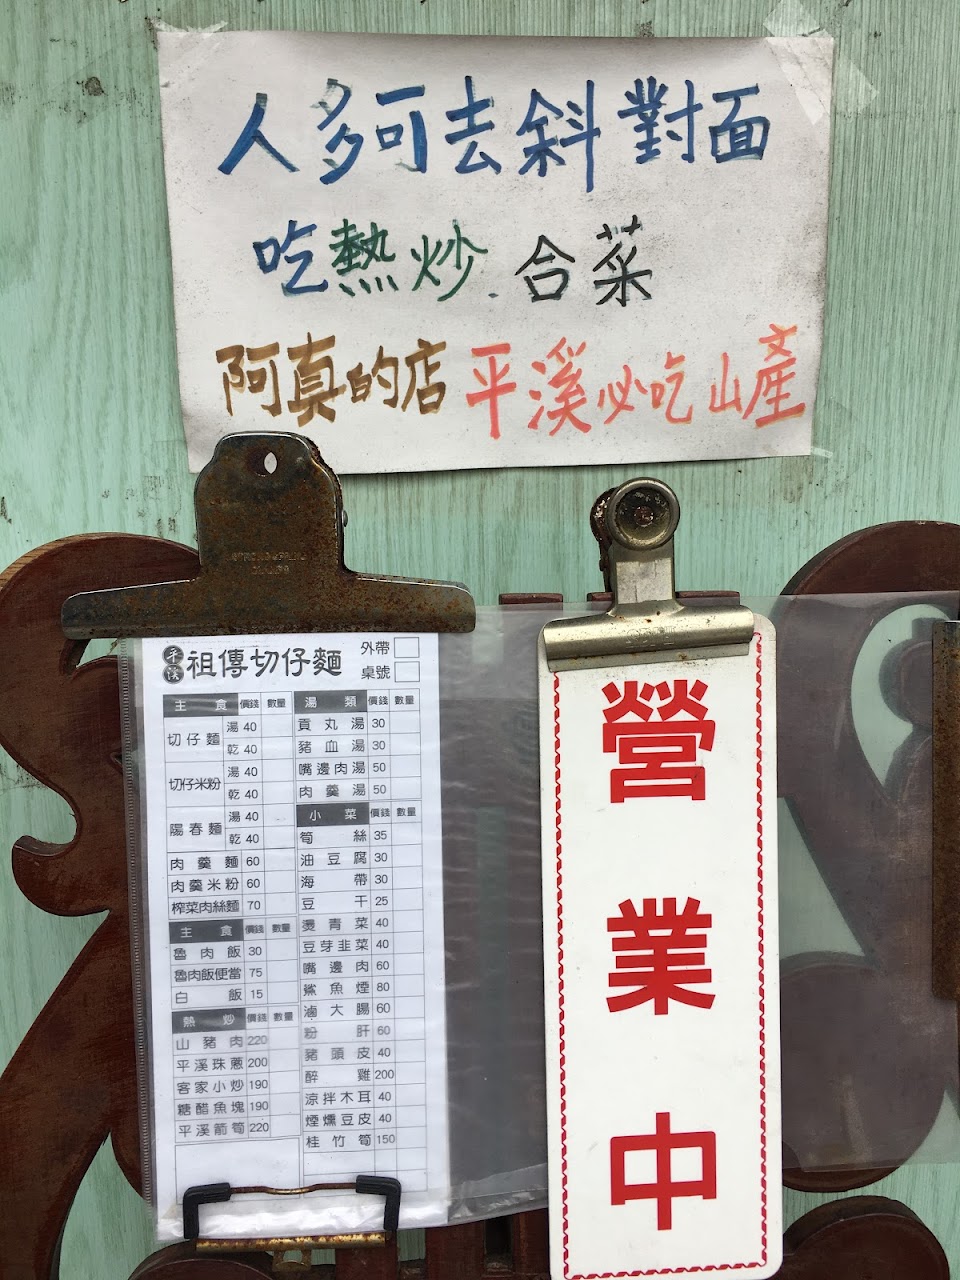 人多可去斜對面
吃熱炒.合菜
阿真的店 平溪必吃山產
平溪 祖傳切仔麵
外帶
桌號
主食 價錢 數量
切仔麵 湯 40
乾 40
切仔米粉 湯 40
乾 40
陽春麵 湯 40
乾 40
肉羹麵 60
肉羹米粉 60
榨菜肉絲麵 70
主食 價錢 數量
魯肉飯 30
魯肉飯便當 75
白飯 15
熱炒 價錢 數量
山豬肉 220
平溪珠蔥 200
客家小炒 190
糖醋魚塊 190
平溪箭筍 220
湯類 價錢 數量
貢丸湯 30
豬血湯 30
嘴邊肉湯 50
肉羹湯 50
小菜 價錢 數量
筍絲 35
油豆腐 30
海帶 30
豆干 25
燙青菜 40
豆芽韭菜 40
嘴邊肉 60
鯊魚煙 80
滷大腸 60
粉肝 60
豬頭皮 40
醉雞 200
涼拌木耳 40
煙燻豆皮 40
桂竹筍 150
營業中